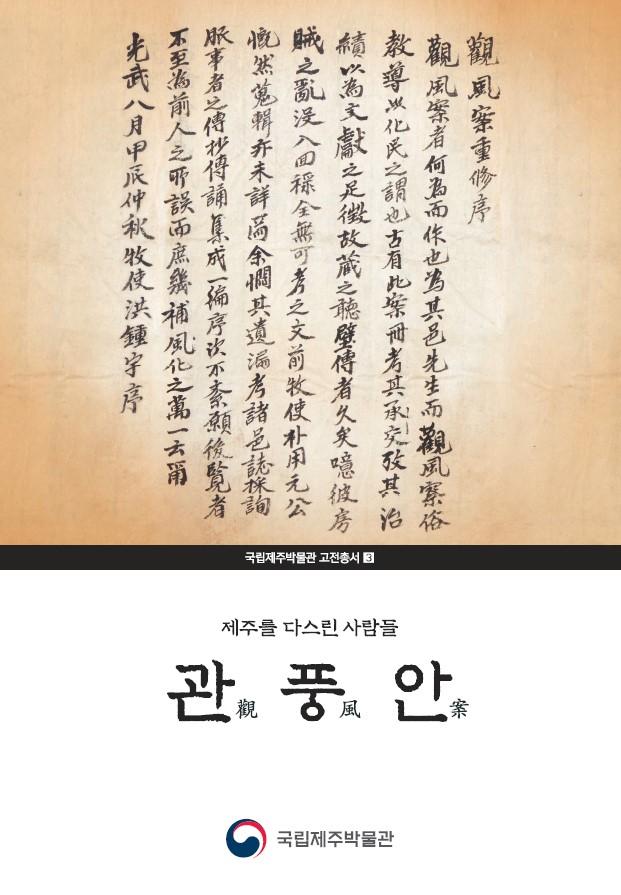 觀風案重修序
觀風案者何為而作也為其邑先生而觀風察俗
教導以化民之謂也古有此案冊考其承交攷其治
績以為文獻之足徵故藏之聽壁傳者久矣噫彼房
賊之亂沒入回祿全無可考之文前牧使朴用元公
慨然蒐輯亦未詳焉余憫其遺漏考諸邑誌採詢
脈事者之傳抄傳誦集成一編序次不紊願後覽者
不至為前人之所誤而庶幾補風化之萬一云爾
光武八月甲辰仲秋牧使洪鍾宇序
국립제주박물관 고전총서 3
제주를 다스린 사람들
관觀 풍風 안案
국립제주박물관